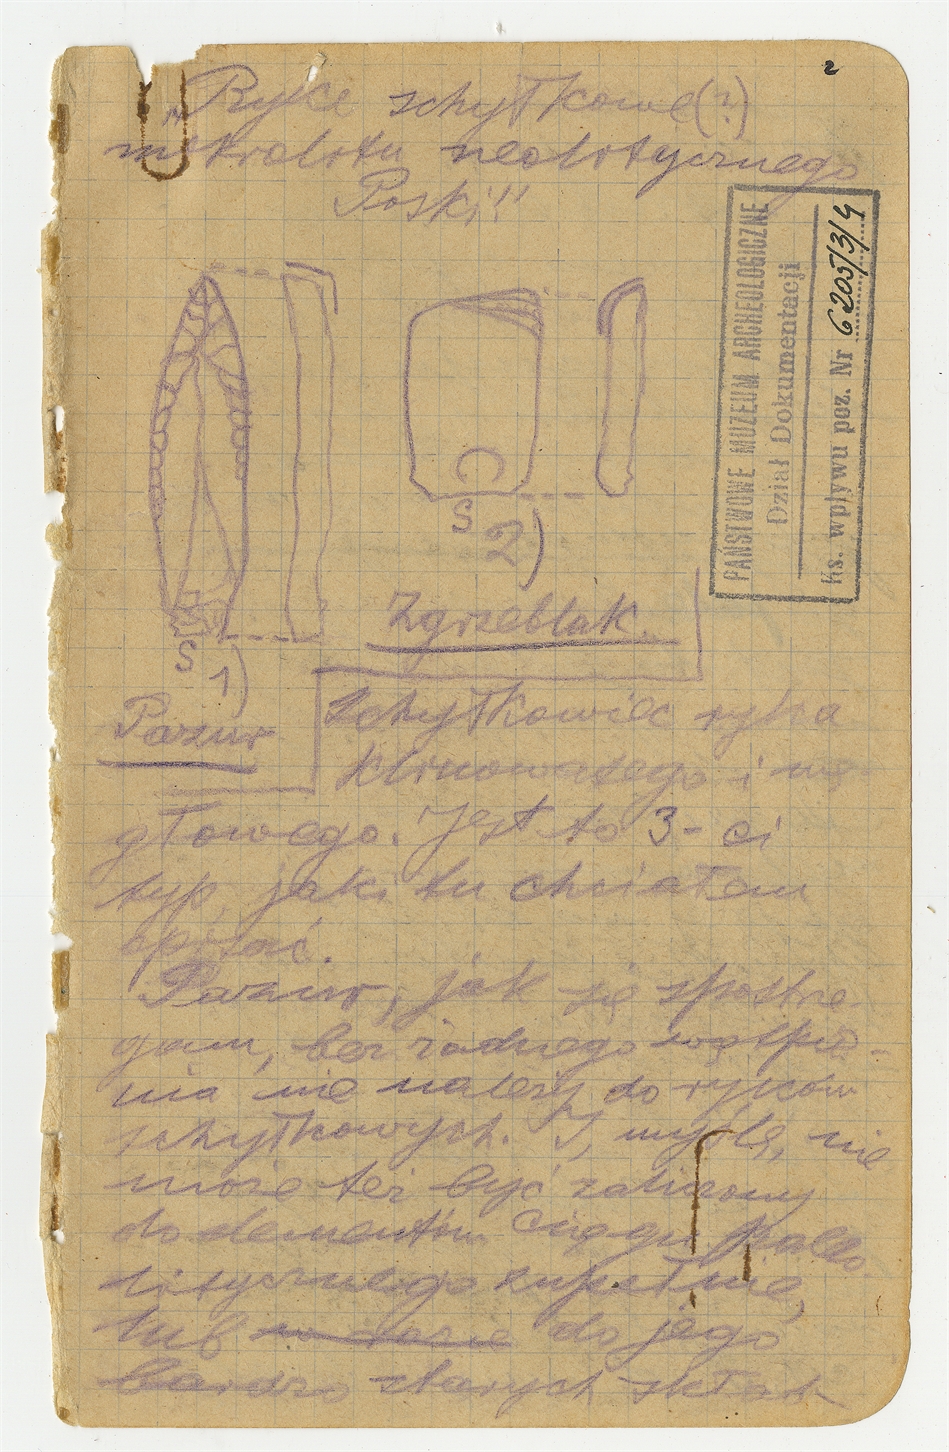 2
„Ryłce schyłkowe(?)
mikrolitu neolitycznego
Polski"
PAŃSTWOWE MUZEUM ARCHEOLOGICZNE
Dział Dokumentacji
Ks. wpływu poz. Nr 6205/3/4
S
1)
S
2)
Zgrzeblak
Pazur
Schyłkowiec rylca
klinowatego i wę-
głowego. Jest to 3-ci
typ, jaki tu chciałem
opisać.
Pazur, jak się spostrze-
gam, bez żadnego wątpie-
nia nie należy do rylców
schyłkowych. I, myślę, nie
może też być zaliczony
do elementów ciągu paleo-
litycznego zupełnie,
lub do jego
bardzo starych skład-